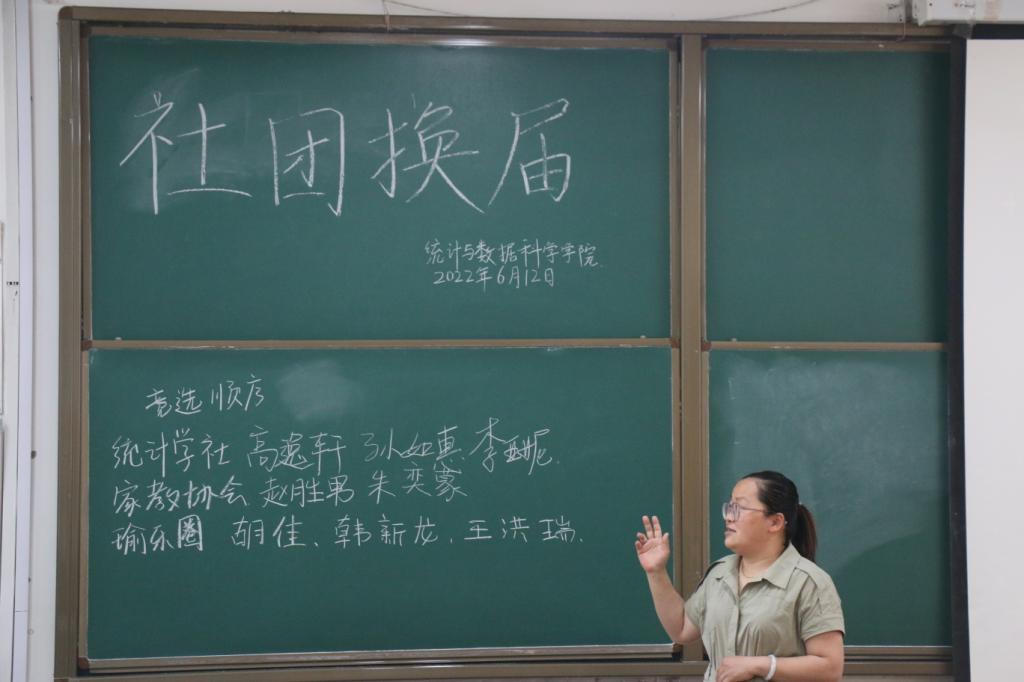 社团换届
统计与数据科学学院
2022年6月12日
竞选顺序
统计学社 高逸轩 孙如惠 李妮.
家教协会 赵胜男 朱奕蒙
瑜乐圈 胡佳、韩新龙、王洪瑞.